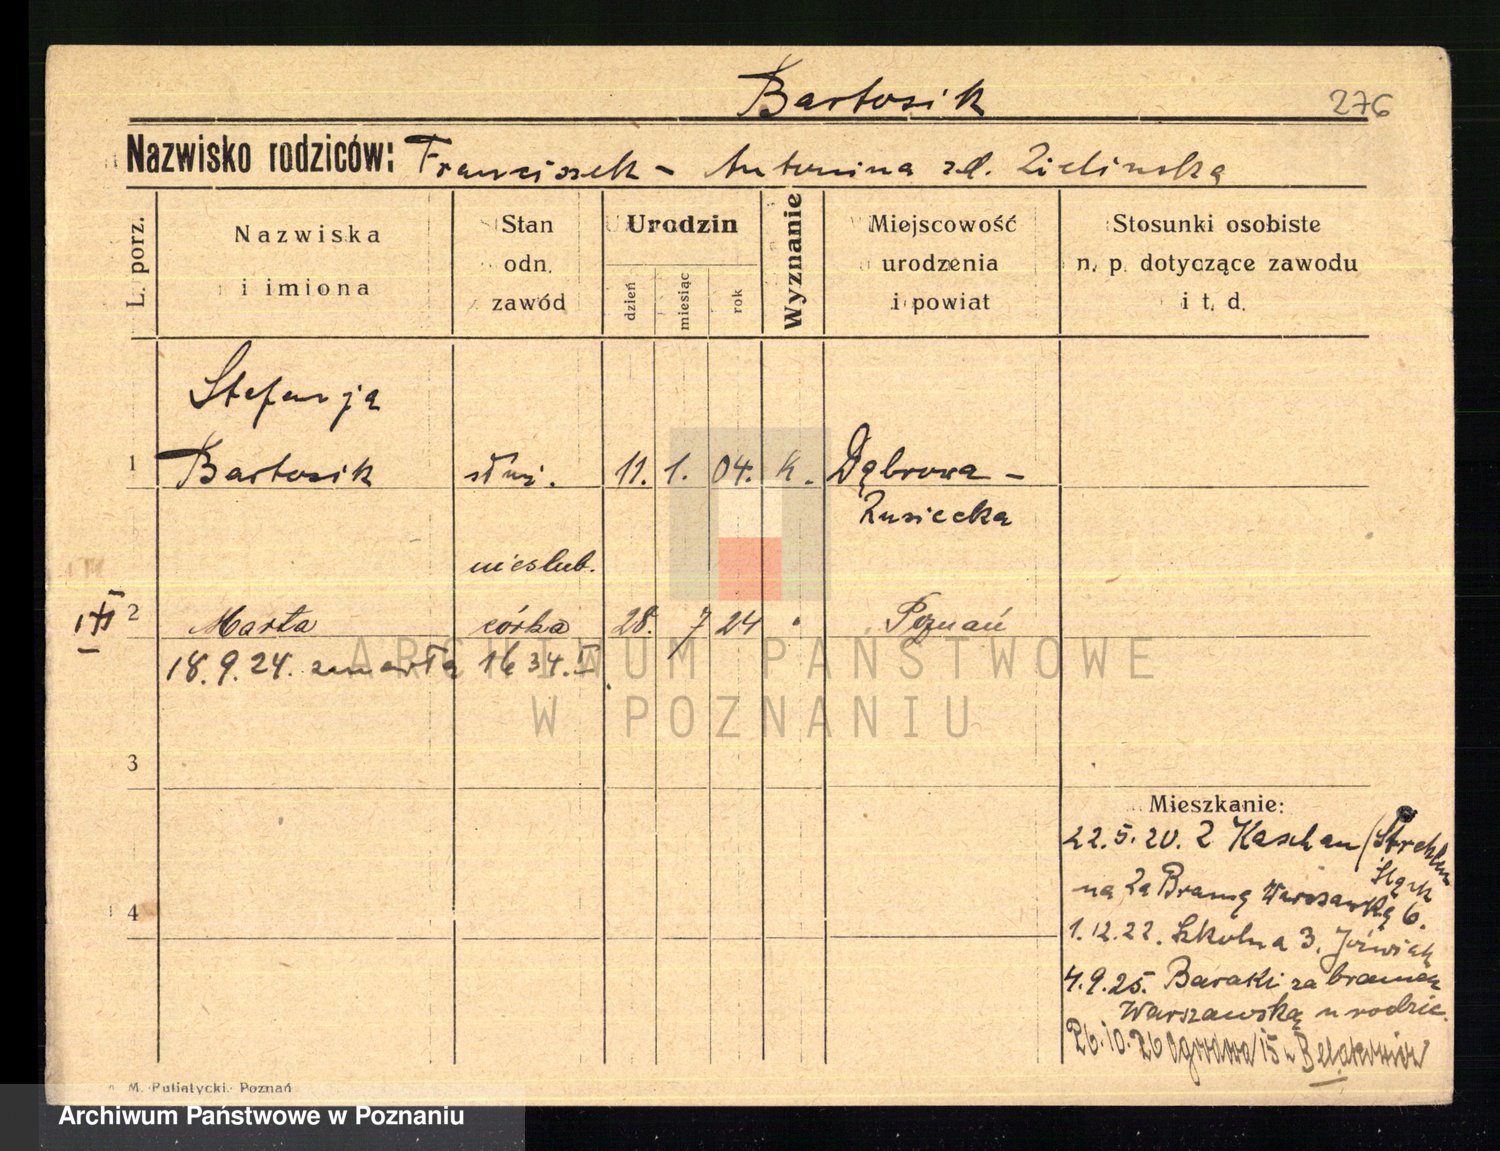 Bartosik
276
Nazwisko rodziców: Franciszek - Antonina zd. Zielinska
L. porz.
Nazwiska
i imiona
Stan
odn.
zawód
Urodzin
dzień
miesiąc
rok
Wyznanie
Miejscowość
urodzenia
i powiat
Stosunki osobiste
n. p. dotyczące zawodu
i t. d.
Stefanja
1 Bartosik służ. 11. 1. 04. K. Dąbrowa -
nieslub.
2 Marta córka 28. 7 24 Poznań
18.9.24. zmarła 1634.I
ARCHIWUM PAŃSTWOWE
W POZNANIU
3
4
Mieszkanie:
22.5.20. Z Kaschau (Strehlen
Śląsk
na Za Bramą Warszawką 6.
1.12.22. Szkolna 3. Jóźwiak
4.9.25. Baraki za bramą
Warszawską u rodzic.
26.10.26 Ogrodowa 15 u
M. Putiatycki. Poznań
Archiwum Państwowe w Poznaniu